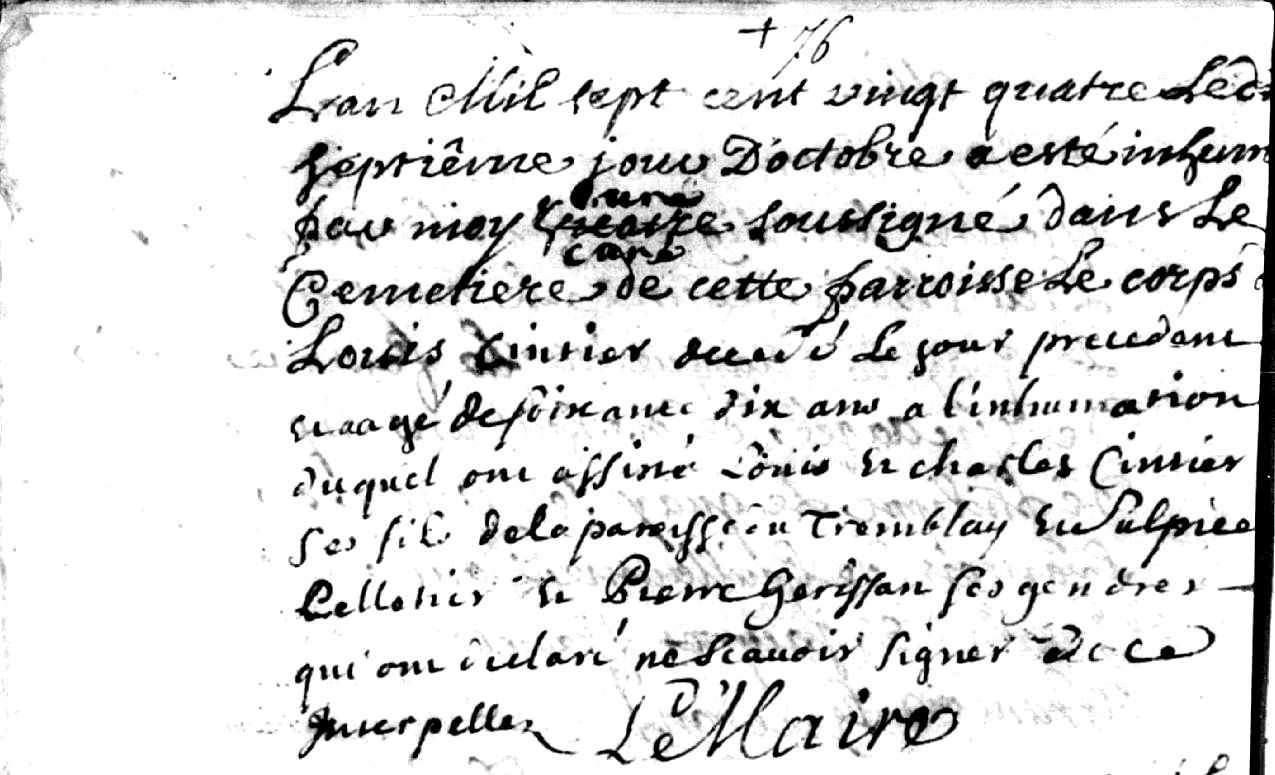 + 76
L'an Mil sept cent vingt quatre Le di
septiême jour D'octobre a esté inhum
par moy curé soussigné dans Le
curé
Cemetiere de cette parroisse Le corps
Louis Cintier decedé Le jour precedent
et aagé de soixante dix ans a l'inhumation
duquel ont assisté Louis et charles Cintier
ses fils de la paroisse du Tremblay et Sulpice
Pelletier et Pierre herissan ses gendres
qui ont declaré ne scauoir signer de ce
Interpellez LeMaire